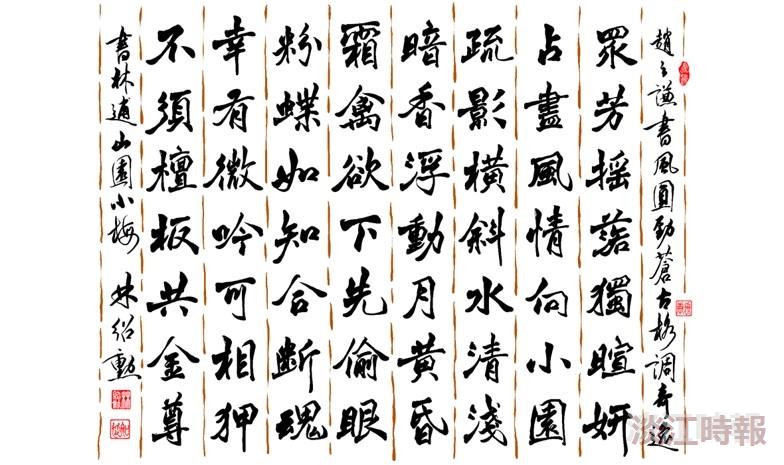 趙之謙書風圓勁蒼古格調奇逸
眾芳搖落獨暄妍
占盡風情向小園
疏影橫斜水清淺
暗香浮動月黃昏
霜禽欲下先偷眼
粉蝶如知合斷魂
幸有微吟可相狎
不須檀板共金尊
書林逋山園小梅 林紹勳
淡江時報